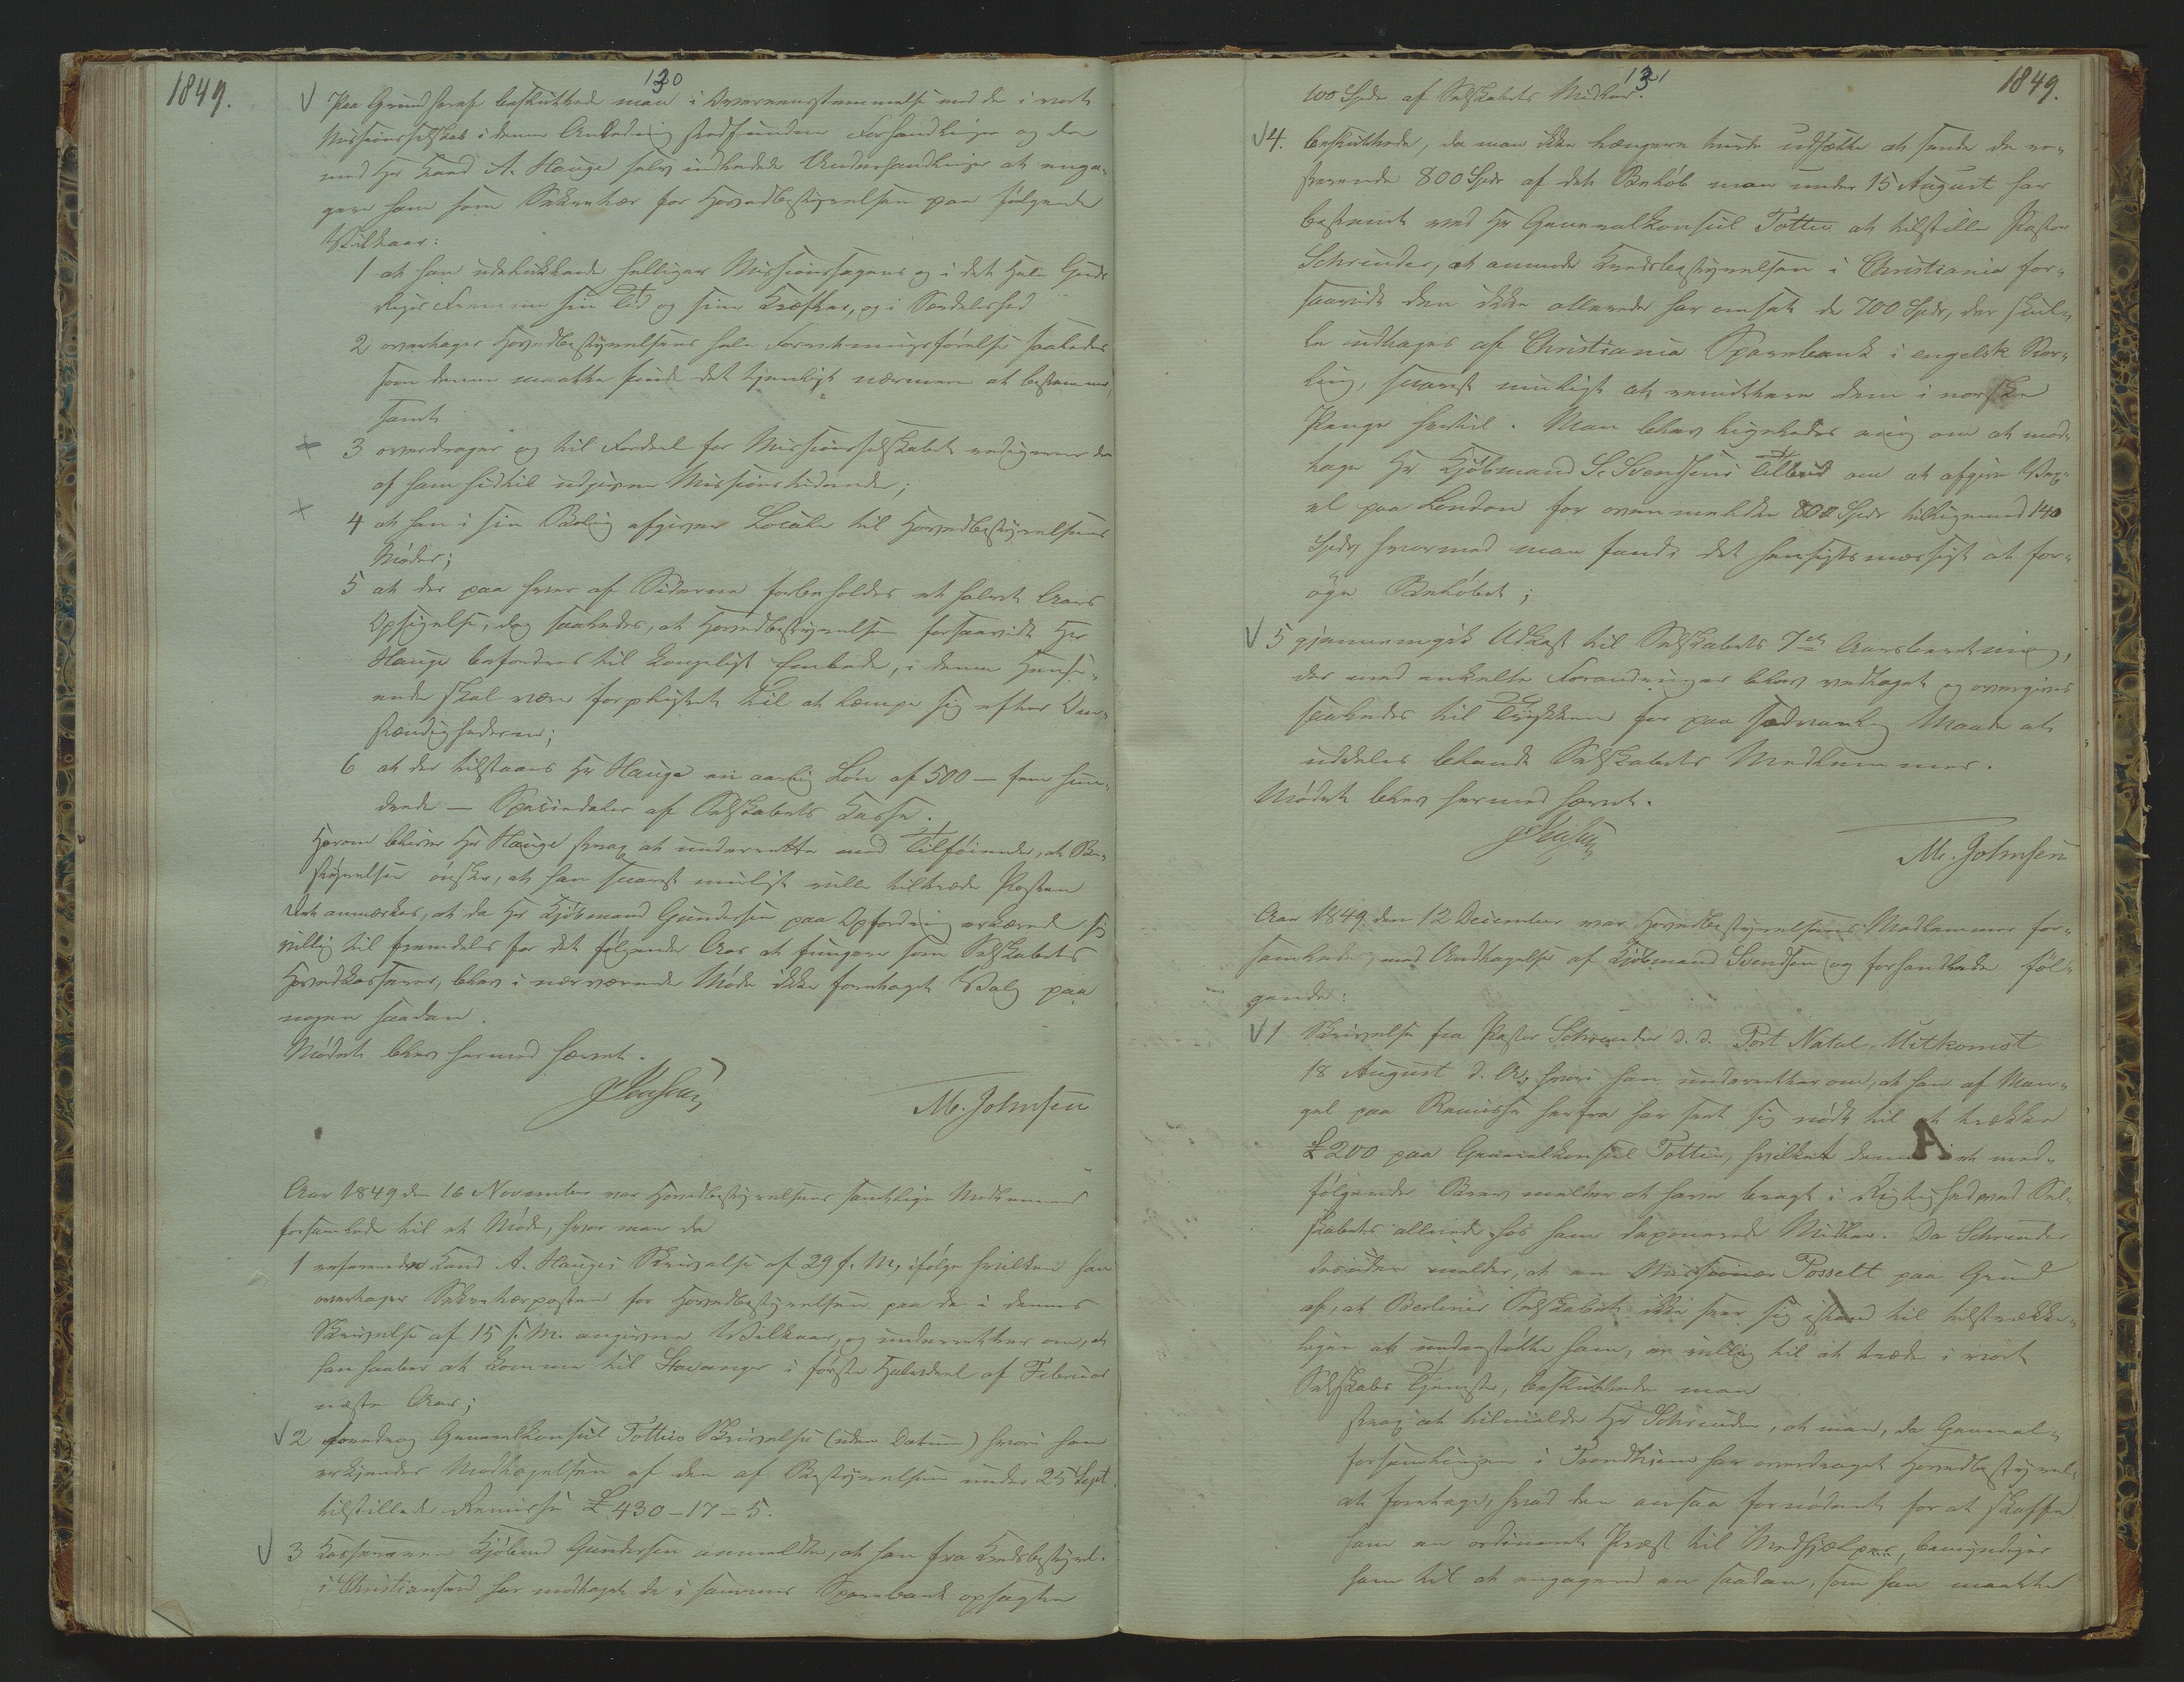 1849.
130
Paa Grund heraf besluttede man i Overeensstemmelse med de i vort
Missionsselskab i denne Anledning stedfundne Forhandlinger og de
med Hr Cand A. Hauge selv indledede Underhandlinger at enga-
gere ham som Sekretær for Hovedbestyrelsen paa følgende
Vilkaar:
1 at han udelukkende helliger Missionssagens og i det Hele Guds
Riges Fremme sin Tid og sine Kræfter, og i Særdeleshed
2 overtager Hovedbestyrelsens hele Forretningsførelse saaledes
som denne maatte finde det tjenligst nærmere at bestemme,
samt
3 overdrager og til Fordeel for Missionsselskabet redigerer de
af ham hidtil udgivne Missionstidender;
4 at han i sin Bolig afgiver Locale til Hovedbestyrelsens
Møder;
5 at der paa hver af Siderne forbeholdes et halvt Aars
Opsigelse, dog saaledes, at Hovedbestyrelsen forsaavidt Hr
Hauge befordres til kongeligt Embede, i denne Hense-
ende skal være forpligtet til at lempe sig efter Om-
stændighederne;
6 at der tilstaaes Hr Hauge en aarlig Løn af 500 — fem hun-
drede — Speciedaler af Selskabets Kasse.
Herom bliver Hr Hauge strax at underrette med Tilføiende, at Be-
styrelsen ønsker, at han snarest muligt ville tiltræde Posten
Det anmærkes, at da Hr Kjøbmand Gundersen paa Opfordring erklærede sig
villig til fremdeles for det følgende Aar at fungere som Selskabets
Hovedkasserer, blev i nærværende Møde ikke foretaget Valg paa
nogen saadan.
Mødet blev hermed hævet.
M. Johnsen
Aar 1849 den 16 November var Hovedbestyrelsens samtlige Medlemmer
forsamlede til et Møde, hvor man da
1 refererede Cand A. Hauges Skrivelse af 29 f. M., ifølge hvilken han
overtager Sekretærposten for Hovedbestyrelsen paa de i dennes
Skrivelse af 15 s. M. angivne Vilkaar, og underretter om, at
han haaber at komme til Stavanger i første Halvdeel af Februar
næste Aar;
2 foredrog Generalkonsul Totties Skrivelse (uden Datum) hvori han
erkjender Modtagelsen af den af Bestyrelsen under 25 Sept
tilstillede Remisse £ 430-17-5.
3 Kassereren Kjøbmd Gundersen anmeldte, at han fra Kredsbestyrel.
i Christiansand har modtaget de i sammes Sparebank opsagte
131
1849.
100 Spdr af Selskabets Midler.
4. besluttede, da man ikke længere turde udsætte at sende de re-
sterende 800 Spdr af det Beløb man under 15 August har
bestemt ved Hr Generalkonsul Tottie at tilstille Pastor
Schreuder, at anmode Kredsbestyrelsen i Christiania for-
saavidt den ikke allerede har omsat de 700 Spdr, der skul-
le udtages af Christiania Sparebank i engelsk Ster-
ling, snarest muligt at remittere dem i norske
Penge hertil. Man blev ligeledes enig om at mod-
tage Hr Kjøbmand S. Svendsens Tilbud om at afgive Vex-
el paa London for ovenmeldte 800 Spdr tilligemed 140
Spdr hvormed man fandt det hensigtsmæssigt at for-
øge Beløbet;
5 gjennemgik Udkast til Selskabets 7de Aarsberetning,
der med enkelte Forandringer blev vedtaget og overgives
saaledes til Trykken for paa sædvanlig Maade at
uddeles blandt Selskabets Medlemmer.
Mødet blev hermed hævet.
M. Johnsen
Aar 1849 den 12 December var Hovedbestyrelsens Medlemmer for-
samlede, med Undtagelse af Kjøbmand Svendsen og forhandlede føl-
gende:
1 Skrivelse fra Pastor Schreuder d. d. Port Natal, Uitkomst
18 August d. A., hvori han underretter om, at han af Man-
gel paa Remisse herfra har seet sig nødt til at trække
£ 200 paa Generalkonsul Tottie, hvilket denne i et med-
følgende Brev melder at have bragt i Rigtighed med Sel-
skabets allerede hos ham deponerede Midler. Da Schreuder
desuden melder, at en Missionær Posselt paa Grund
af, at Berliner Selskabet ikke seer sig istand til tilstrække-
ligen at understøtte ham, er villig til at træde i vort
Selskabs Tjeneste, besluttede man
strax at tilmelde Hr Schreuder, at man, da General-
forsamlingen i Trondhjem har overdraget Hovedbestyrel.
at foretage, hvad den ansaa fornødent for at skaffe
ham en ordineret Præst til Medhjælper, bemyndiger
ham til at engagere en saadan, som han maatte